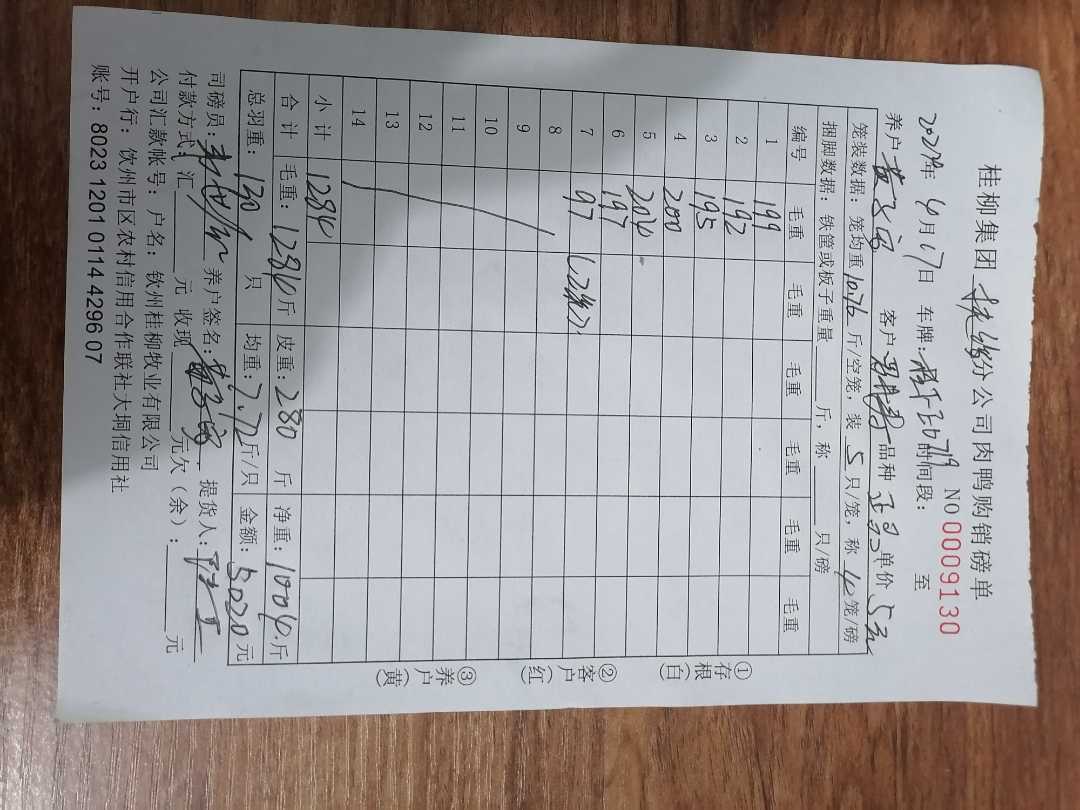 桂柳集团 分公司肉鸭购销磅单
NO 00009130
2024年 4月17日 车牌: 时间段: 至
养户 黄 客户 品种 正品 单价 5元
笼装数据：笼均重 10.76 斤/空笼，装 5 只/笼，称 4 笼/磅
捆脚数据：铁筐或板子重量 斤，称 只/磅
编号 毛重 毛重 毛重 毛重 毛重 毛重
1 199
2 192
3 195
4 200
5 204
6 197
7 97 (2笼)
8
9
10
11
12
13
14
小计 1284
合计 毛重：1284斤 皮重：280 斤 净重：1004斤
总羽重：130 只 均重：7.72斤/只 金额：5020元
司磅员： 养户签名： 提货人：
付款方式：汇 元 收现 元欠（余）： 元
公司汇款帐号：户名：钦州桂柳牧业有限公司
开户行：钦州市区农村信用合作联社大垌信用社
账号：8023 1201 0114 4296 07
①存根（白）
②客户（红）
③养户（黄）